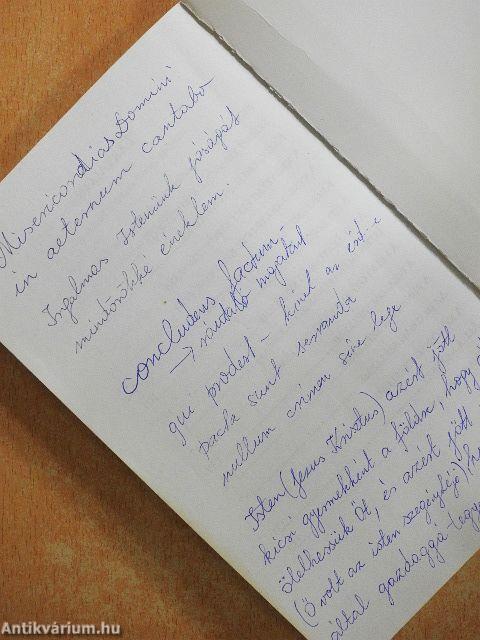 Misericordias Domini
in aeternum cantabo
Irgalmas Istenünk jóságát
mindörökké éneklem.
concludens factum -
→ ráutaló magatart
qui prodest - kinek az érd-e
Pacta sunt servanda
nullum crimen sine lege
Isten (Jesus Kristus) azért jött
kicsi gyermekként a földre, hogy
ölelhessük Őt, és azért jött
(Ő volt az isten szegénykéje)
által gazdaggá
Antikvárium.hu